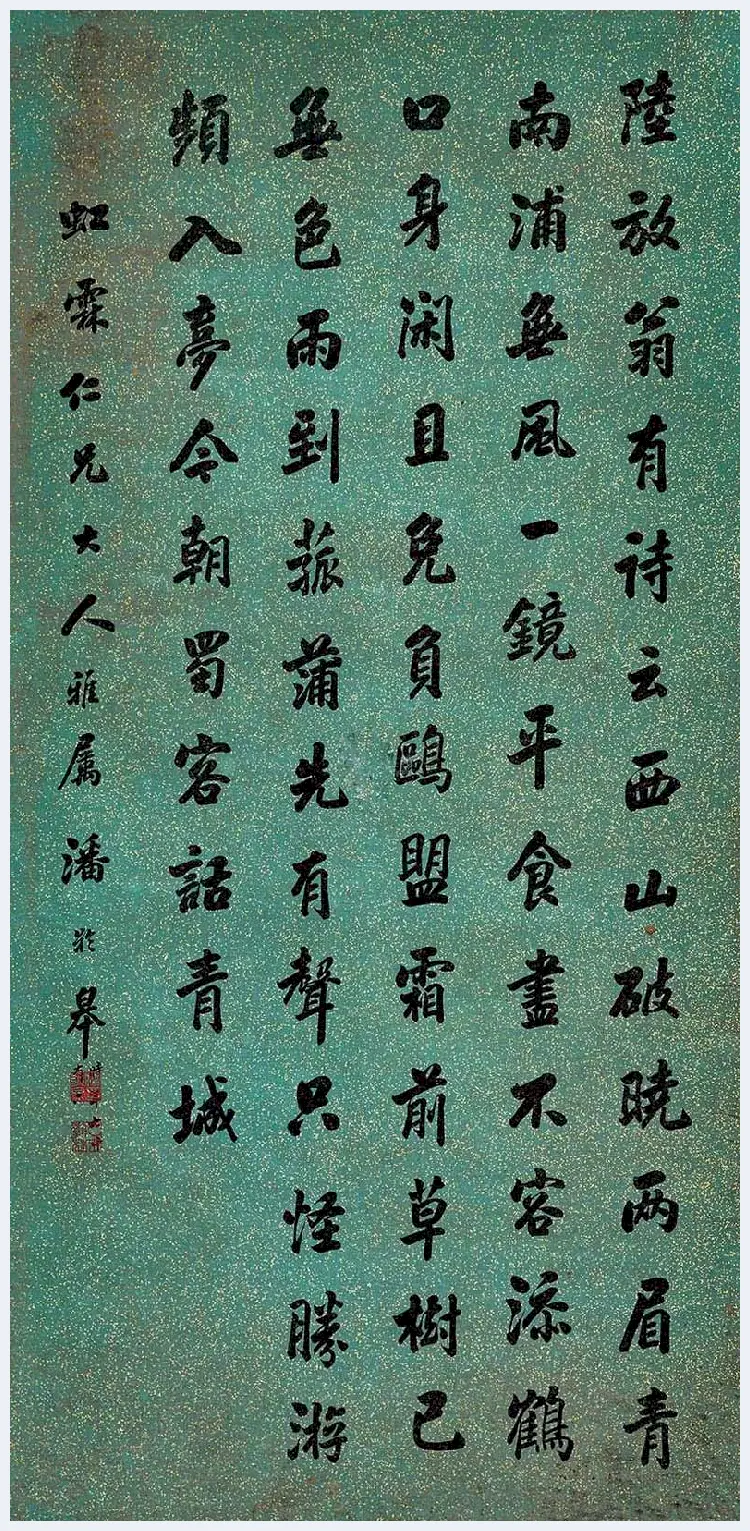 陸放翁有诗云西山破曉两眉青
南浦無風一鏡平食盡不容添鶴
口身闲且免負鷗盟霜前草樹已
無色雨到菰蒲先有聲只怪勝游
頻入夢今朝蜀客話青城
虹霖仁兄大人雅属潘於皋